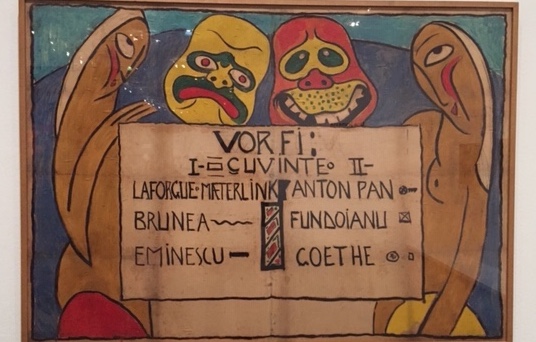 VOR FI:
I- CUVINTE II-
LAFORGUE-MÆTERLINK ANTON PAN
BRUNEA FUNDOIANU
EMINESCU GOETHE